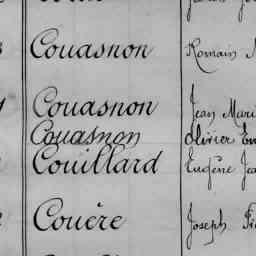 Couasnon Romain
Couasnon Jean Mari
Couasnon Olivier
Couillard Eugène Jea
Couëre Joseph